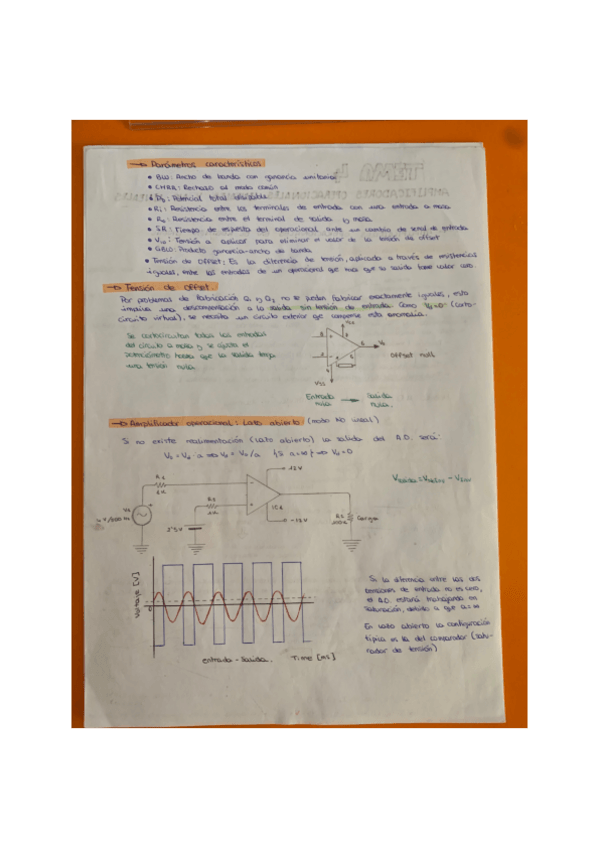 → Parámetros característicos
• BW: Ancho de banda con ganancia unitaria
• CMRR: Rechazo al modo común
• PD: Potencial total disipable
• Ri: Resistencia entre los terminales de entrada con una entrada a masa
• Ro: Resistencia entre el terminal de salida y masa
• SR: Tiempo de respuesta del operacional ante un cambio de señal de entrada
• Vio: Tensión a aplicar para eliminar el valor de la tensión de offset
• GBW: Producto ganancia-ancho de banda
• Tensión de OFFSET: Es la diferencia de tensión, aplicada a través de resistencias
iguales, entre las entradas de un operacional que hace que su salida tome valor cero
→ Tensión de offset.
Por problemas de fabricación Q1 y Q2 no se pueden fabricar exactamente iguales, esto
implica una descompensación a la salida sin tensión de entrada. Como Vd=0 (corto-
circuito virtual), se necesita un circuito exterior que compense esta anomalía.
Se cortocircuitan todas las entradas
del circuito a masa y se ajusta el
potenciómetro hasta que la salida tenga
una tensión nula.
Vcc
Vo
Offset null
Vss
Entrada nula → Salida nula.
→ Amplificador operacional: Lazo abierto (modo No lineal)
Si no existe realimentación (Lazo abierto) la salida del A.O. será:
Vo = Vd · a ⇒ Vd = Vo/a {Si a=∞} ⇒ Vd=0
12V
-12V
IC1
Carga
voltaje [V]
0
entrada-salida.
Time [ms]
Si la diferencia entre las dos
tensiones de entrada no es cero,
el A.O. estará trabajando en
saturación, debido a que a=∞
En lazo abierto la configuración
típica es la del comparador (satu-
rador de tensión)